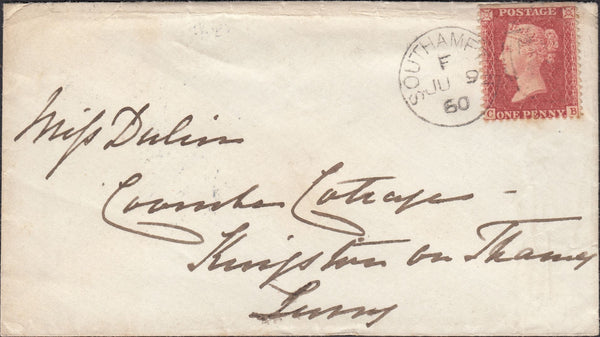 POSTAGE
SOUTHAMP
F
JU 9
60
C ONE PENNY B
Miss Dulin
Coombe Cottage -
Kingston on Thames
Surrey